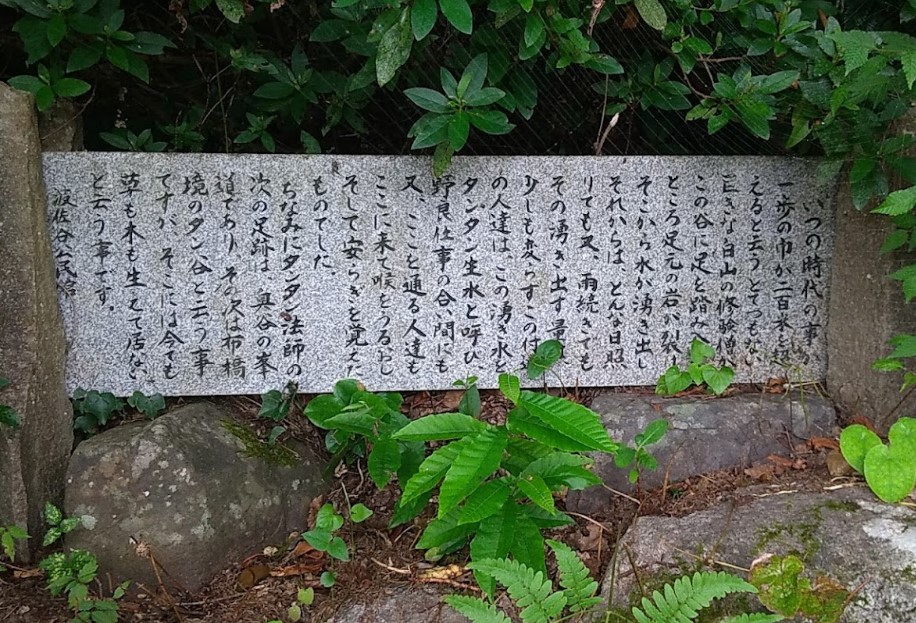 いつの時代の事
一歩の巾が二百米を超
えると云うとてつもな
巨きな白山の修験僧が
この谷に足を踏み
ところ足元の岩が裂け
そこから水が湧き出し
それからは、どんな日照
りでも又、雨続きでも
その湧き出す量
少しも変らずこの付
の人達は、この湧き水を
タンタン生水と呼び、
野良仕事の合い間にも
又、ここを通る人達も
ここに来て喉をうるおし
そして安らぎを覚えた
ものでした。
ちなみにタンタン法師の
次の足跡は、奥谷の峯
道であり、その次は布橋
境のタン谷と云う事
ですが、そこには今でも
草も木も生えて居ない
と云う事です。
坂佐谷公民館